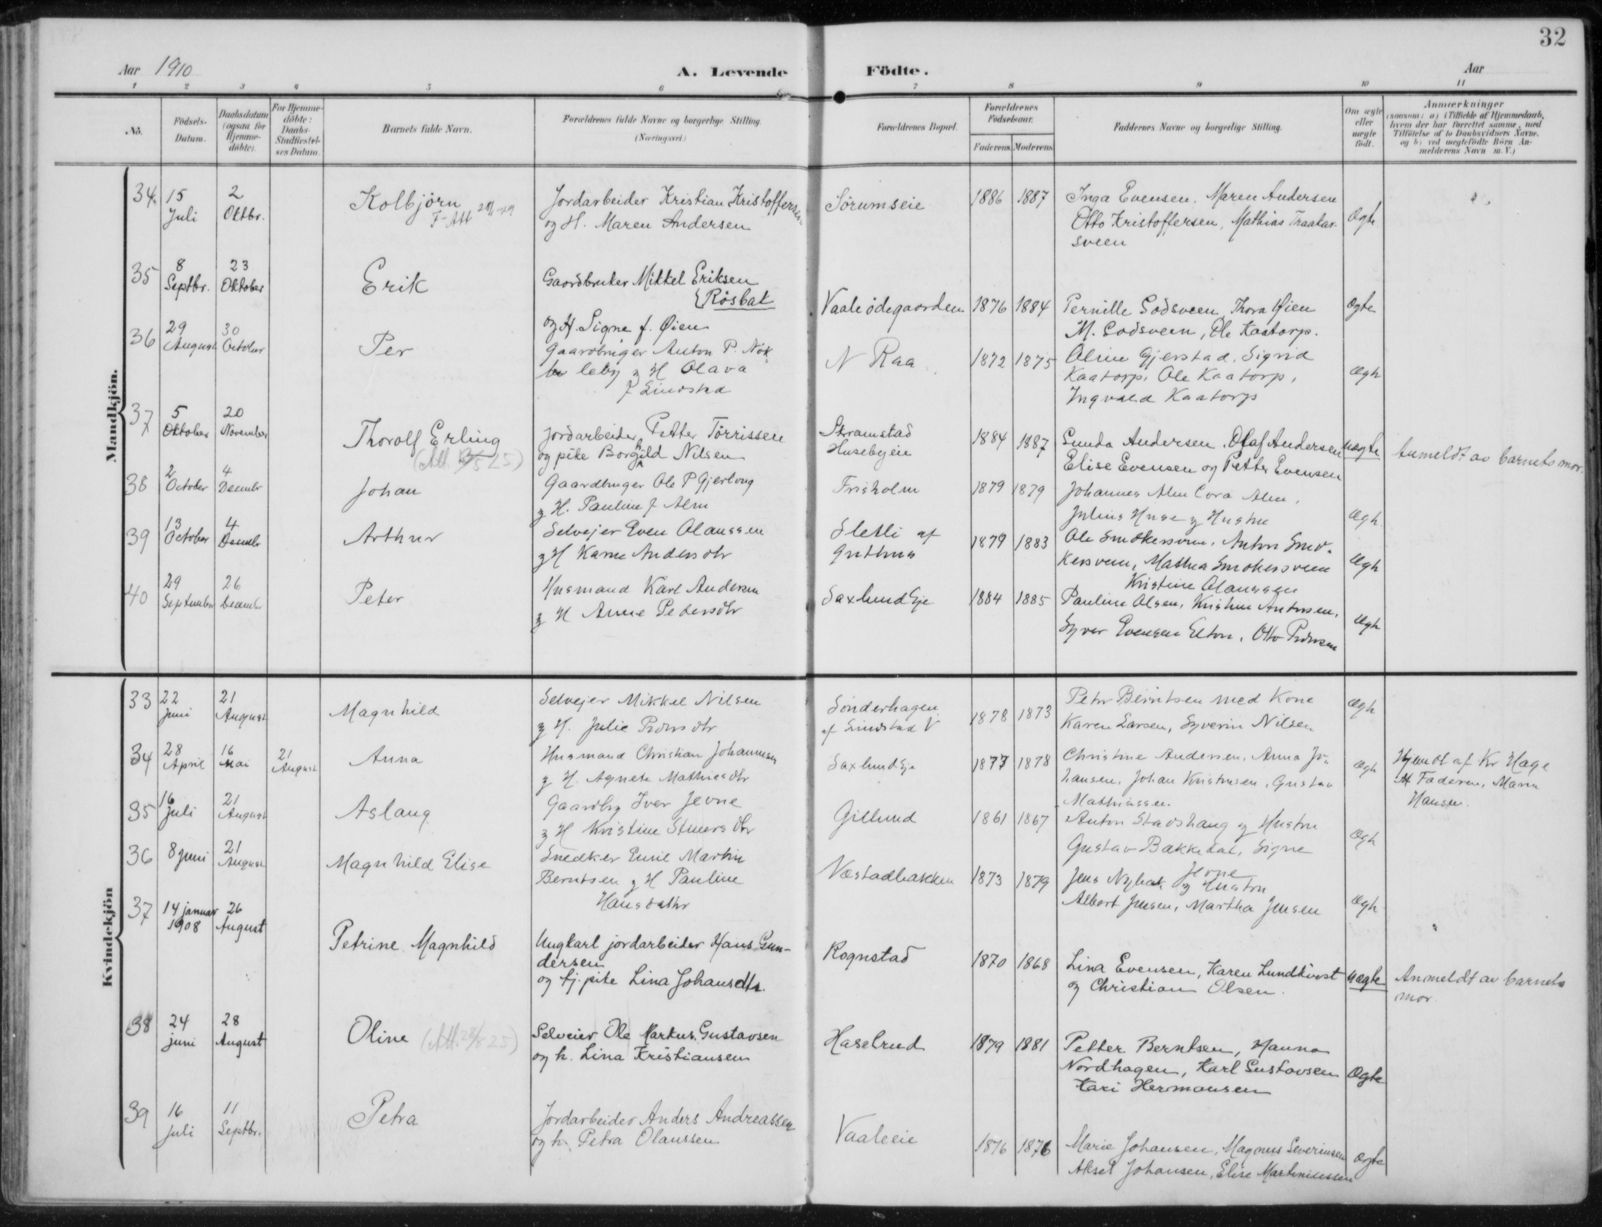 32
Aar 1910
A. Levende Födte.
Aar
1 2 3 4 5 6 7 8 9 10 11
No.
Födsels-Datum.
Daabsdatum (ogsaa for Hjemmedöbte).
For Hjemmedöbte: Daabs-Stadfæstelses Datum.
Barnets fulde Navn.
Forældrenes fulde Navne og borgerlige Stilling. (Næringsvei).
Forældrenes Bopæl.
Forældrenes Födselsaar.
Faderens. Moderens.
Faddernes Navne og borgerlige Stilling.
Om ægte eller uægte födt.
Anmærkninger
(saasom: a) i Tilfælde af Hjemmedaab, hvem der har forrettet samme, med Tilföielse af to Daabsvidners Navne, og b) ved uegtefödte Börn Anmelderens Navn m. V.)
Mandkjön.
34. 15 Juli 2 Oktbr. Kolbjörn Jordarbeider Kristian Kristoffersen Sørumseie 1886 1887 Inga Evensen. Maren Andersen
og H. Maren Andersen Otto Kristoffersen, Mathias Traatar-
sveen Ægte
35 8 Septbr. 23 Oktober Erik Gaardbruker Mikkel Eriksen
Røsbak Vaaleødegaarden 1876 1884 Pernille Godsveen, Thora Øien Ægte
og H. Signe f. Øien M. Godsveen, Ole Kaatorp.
36 29 August 30 October Per Gaardbruger Anton P. Nök
leby og H Olava N Raa 1872 1875 Oline Gjerstad, Sigrid
f Lindstad Kaatorp, Ole Kaatorp, Ægte
Ingvald Kaatorp
37 5 Oktober 20 November Thorolf Erling Jordarbeider Petter Tørrissen Skramstad 1884 1887 Gunda Andersen. Olaf Andersen uægte Anmeldt av barnets mor.
og pike Borgild Nilsen Husebyeie Elise Evensen og Petter Evensen
38 2 October 4 Desembr Johan Gaardbruger Ole P Gjerlong Frisholm 1879 1879 Johannes Alm Cora Alm,
og H. Pauline f Alm Julius Huse og Hustru Ægte
39 13 October 4 Desembr Arthur Selvejer Even Olaussen Sletli af 1879 1883 Ole Smøkersveen. Anton Smø-
og H Karen Andersdtr Grøthus kersveen, Mathea Smøkersveen Ægte
Kristine Olaussen
40 29 September 26 Desember Peter Husmand Karl Andersen Saxlund Eje 1884 1885 Pauline Olsen, Kristine Antonsen,
og H Anne Pedersdtr Syver Evensen Elton, Otto Pedersen Ægte
Kvindekjön
33 22 juni 21 August Magnhild Selvejer Mikkel Nilsen Sönderhagen 1878 1873 Petr Berntsen med Kone Ægte
og H. Julie Pedersdtr af Lindstad V Karen Larsen, Syverin Nilsen
34 28 April 16 Mai 21 August Anna Husmand Christian Johannesen Saxlund Eje 1877 1878 Christine Andersen, Anna Jo- Ægte Hjemdt af Kr Hage
og H. Agnete Mathiesdtr hansen, Johan Kristensen, Gustav Faderen, Maren
Mathiassen. Hansen.
35 16 Juli 21 August Aslaug Gaardbr Iver Jevne Gillund 1861 1867 Anton Stadshaug og Hustru
og H Kristine Steensdtr Gustav Bakkedal, Signe Ægte
Jevne
36 8 juni 21 August Magnhild Elise Snedker Emil Martin Næstadbakken 1873 1879 Jens Nybak og Hustru
Berntsen og H Pauline Albert Jensen, Martha Jensen Ægte
Hansdatter
37 14 januar 1908 26 August Petrine Magnhild Ungkarl jordarbeider Hans Gun- Rognstad 1870 1868 Lina Evensen, Karen Lundkvist uægte Anmeldt av barnets
dersen og Christian Olsen. mor.
og tj. pike Lina Johansdtr.
38 24 juni 28 August Oline Selveier Ole Markus Gustavsen Haselrud 1879 1881 Petter Berntsen, Hanna
og h. Lina Kristiansen Nordhagen, Karl Gustavsen Ægte
Kari Hermansen
39 16 Juli 11 Septbr. Petra Jordarbeider Anders Andreassen Vaaleeie 1876 1876 Marie Johansen, Magnus Severinsen Ægte
og h. Petra Olaussen Aksel Johansen, Elise Martiniussen